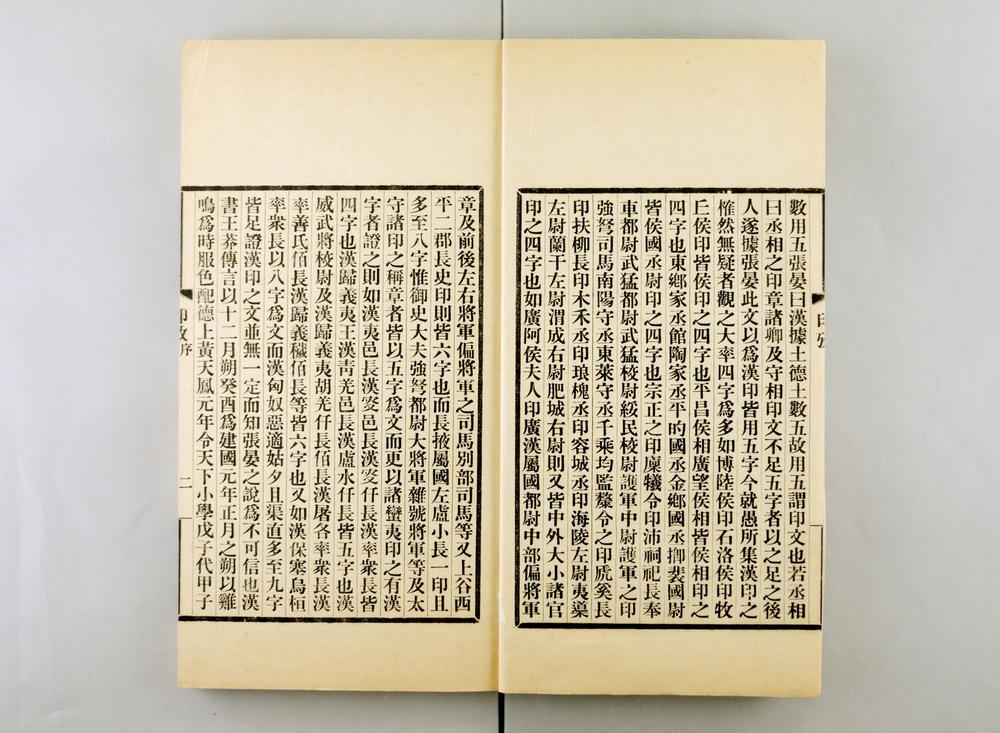 數用五張晏曰漢據土德土數五故用五謂印文也若丞相
曰丞相之印章諸卿及守相印文不足五字者以之足之後
人遂據張晏此文以爲漢印皆用五字今就愚所集漢印之
惟然無疑者觀之大率四字爲多如博陸侯印石洛侯印牧
丘侯印皆侯印之四字也平昌侯相廣望侯相皆侯相印之
四字也東鄉家丞館陶家丞平的國丞金鄉國丞卹裴國尉
皆侯國丞尉印之四字也宗正之印廩犧令印沛祠祀長奉
車都尉武猛都尉武猛校尉綏民校尉護軍中尉護軍之印
強弩司馬南陽守丞東萊守丞千乘均監斄令之印虒奚長
印扶柳長印木禾丞印琅槐丞印容城丞印海陵左尉夷㯱
左尉蘭干左尉渭成右尉肥城右尉則又皆中外大小諸官
印之四字也如廣阿侯夫人印廣漢屬國都尉中部偏將軍
章及前後左右將軍偏將軍之司馬別部司馬等又上谷西
平二郡長史印則皆六字也而長掖屬國左盧小長一印且
多至八字惟御史大夫強弩都尉大將軍雜號將軍等及太
守諸印之稱章者皆以五字爲文而更以諸蠻夷印之有漢
字者證之則如漢夷邑長漢叟邑長漢叟仟長漢率衆長皆
四字也漢歸義夷王漢青羌邑長漢盧水仟長皆五字也漢
威武將校尉及漢歸義夷胡羌仟長佰長漢屠各率衆長漢
率善氐佰長漢歸義穢佰長等皆六字也又如漢保塞烏桓
率衆長以八字爲文而漢匈奴惡適姑夕且渠直多至九字
皆足證漢印之文並無一定而知張晏之說爲不可信也漢
書王莽傳言以十二月朔癸酉爲建國元年正月之朔以雞
鳴爲時服色配德上黃天鳳元年令天下小學戊子代甲子
序
二